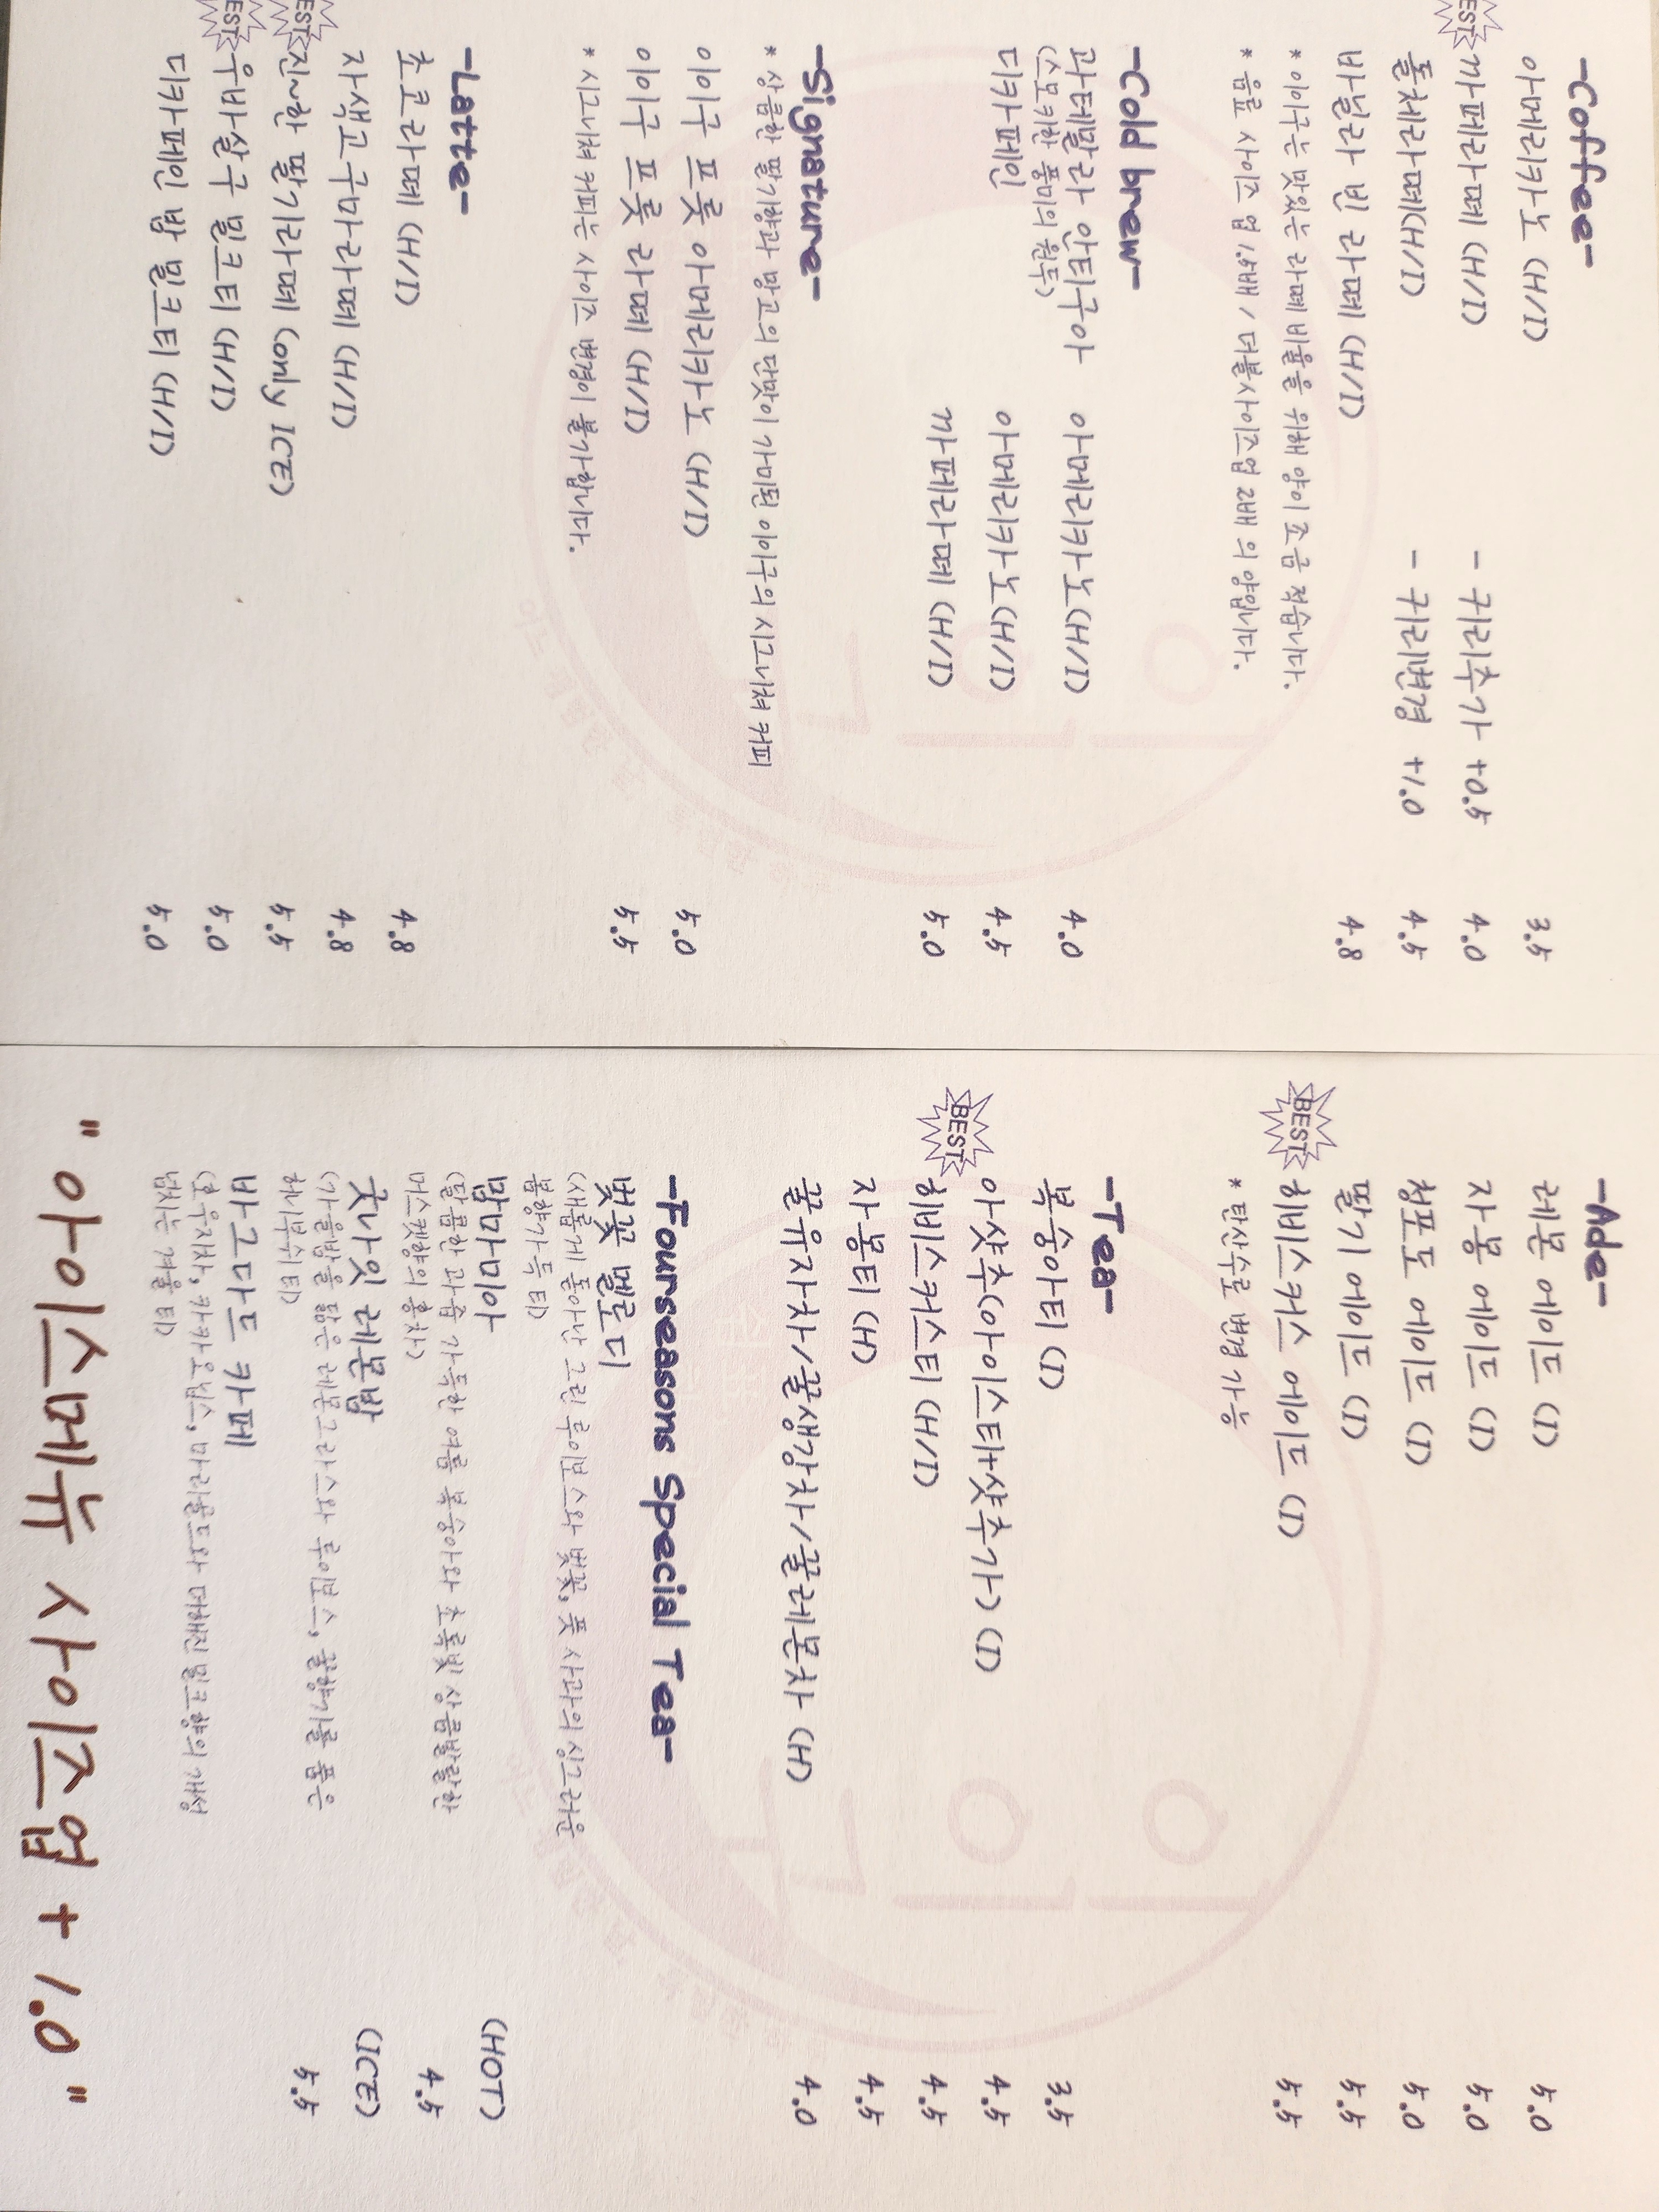 -Coffee-
아메리카노 (H/I) 3.5
BEST 까페라떼 (H/I) - 귀리추가 +0.5 4.0
돌체라떼(H/I) - 귀리변경 +1.0 4.5
바닐라 빈 라떼 (H/I) 4.8
* 이이구는 맛있는 라떼 비율을 위해 양이 조금 적습니다.
* 음료 사이즈 업 1.5배 / 더블사이즈업 2배 의 양입니다.
-Cold brew-
과테말라 안티구아 아메리카노(H/I) 4.0
(스모키한 풍미의 원두)
디카페인 아메리카노(H/I) 4.5
까페라떼 (H/I) 5.0
-Signature-
* 상큼한 딸기향과 망고의 단맛이 가미된 이이구의 시그니쳐 커피
이이구 프룻 아메리카노 (H/I) 5.0
이이구 프룻 라떼 (H/I) 5.5
* 시그니쳐 커피는 사이즈 변경이 불가합니다.
-Latte-
초코라떼 (H/I) 4.8
자색고구마라떼 (H/I) 4.8
BEST 진~한 딸기라떼 (only ICE) 5.5
BEST 우바살구 밀크티 (H/I) 5.0
디카페인 밤 밀크티 (H/I) 5.0
-Ade-
레몬 에이드 (I) 5.0
자몽 에이드 (I) 5.0
청포도 에이드 (I) 5.0
딸기 에이드 (I) 5.5
BEST 히비스커스 에이드 (I) 5.5
* 탄산수로 변경 가능
-Tea-
복숭아티 (I) 3.5
아샷추(아이스티+샷추가) (I) 4.5
BEST 히비스커스티 (H/I) 4.5
자몽티 (H) 4.5
꿀유자차/꿀생강차/꿀레몬차 (H) 4.0
-Fourseasons Special Tea-
벚꽃 멜로디
(새롭게 돋아난 그린 루이보스와 벚꽃, 풋 사과의 싱그러운
봄향가득 티)
맘마미아 (HOT)
(달콤한 과즙 가득한 여름 복숭아와 초록빛 상큼발랄한 4.5
머스캣향의 홍차)
굿나잇 레몬밤 (ICE)
(가을밤을 닮은 레몬그라스와 루이보스, 꿀향기를 품은 5.5
허니부쉬티)
바그다드 카페
(호우지차, 카카오닙스, 마리골드와 더해진 밀크향의 개성
넘치는 겨울 티)
"아이스메뉴 사이즈업 + 1.0"